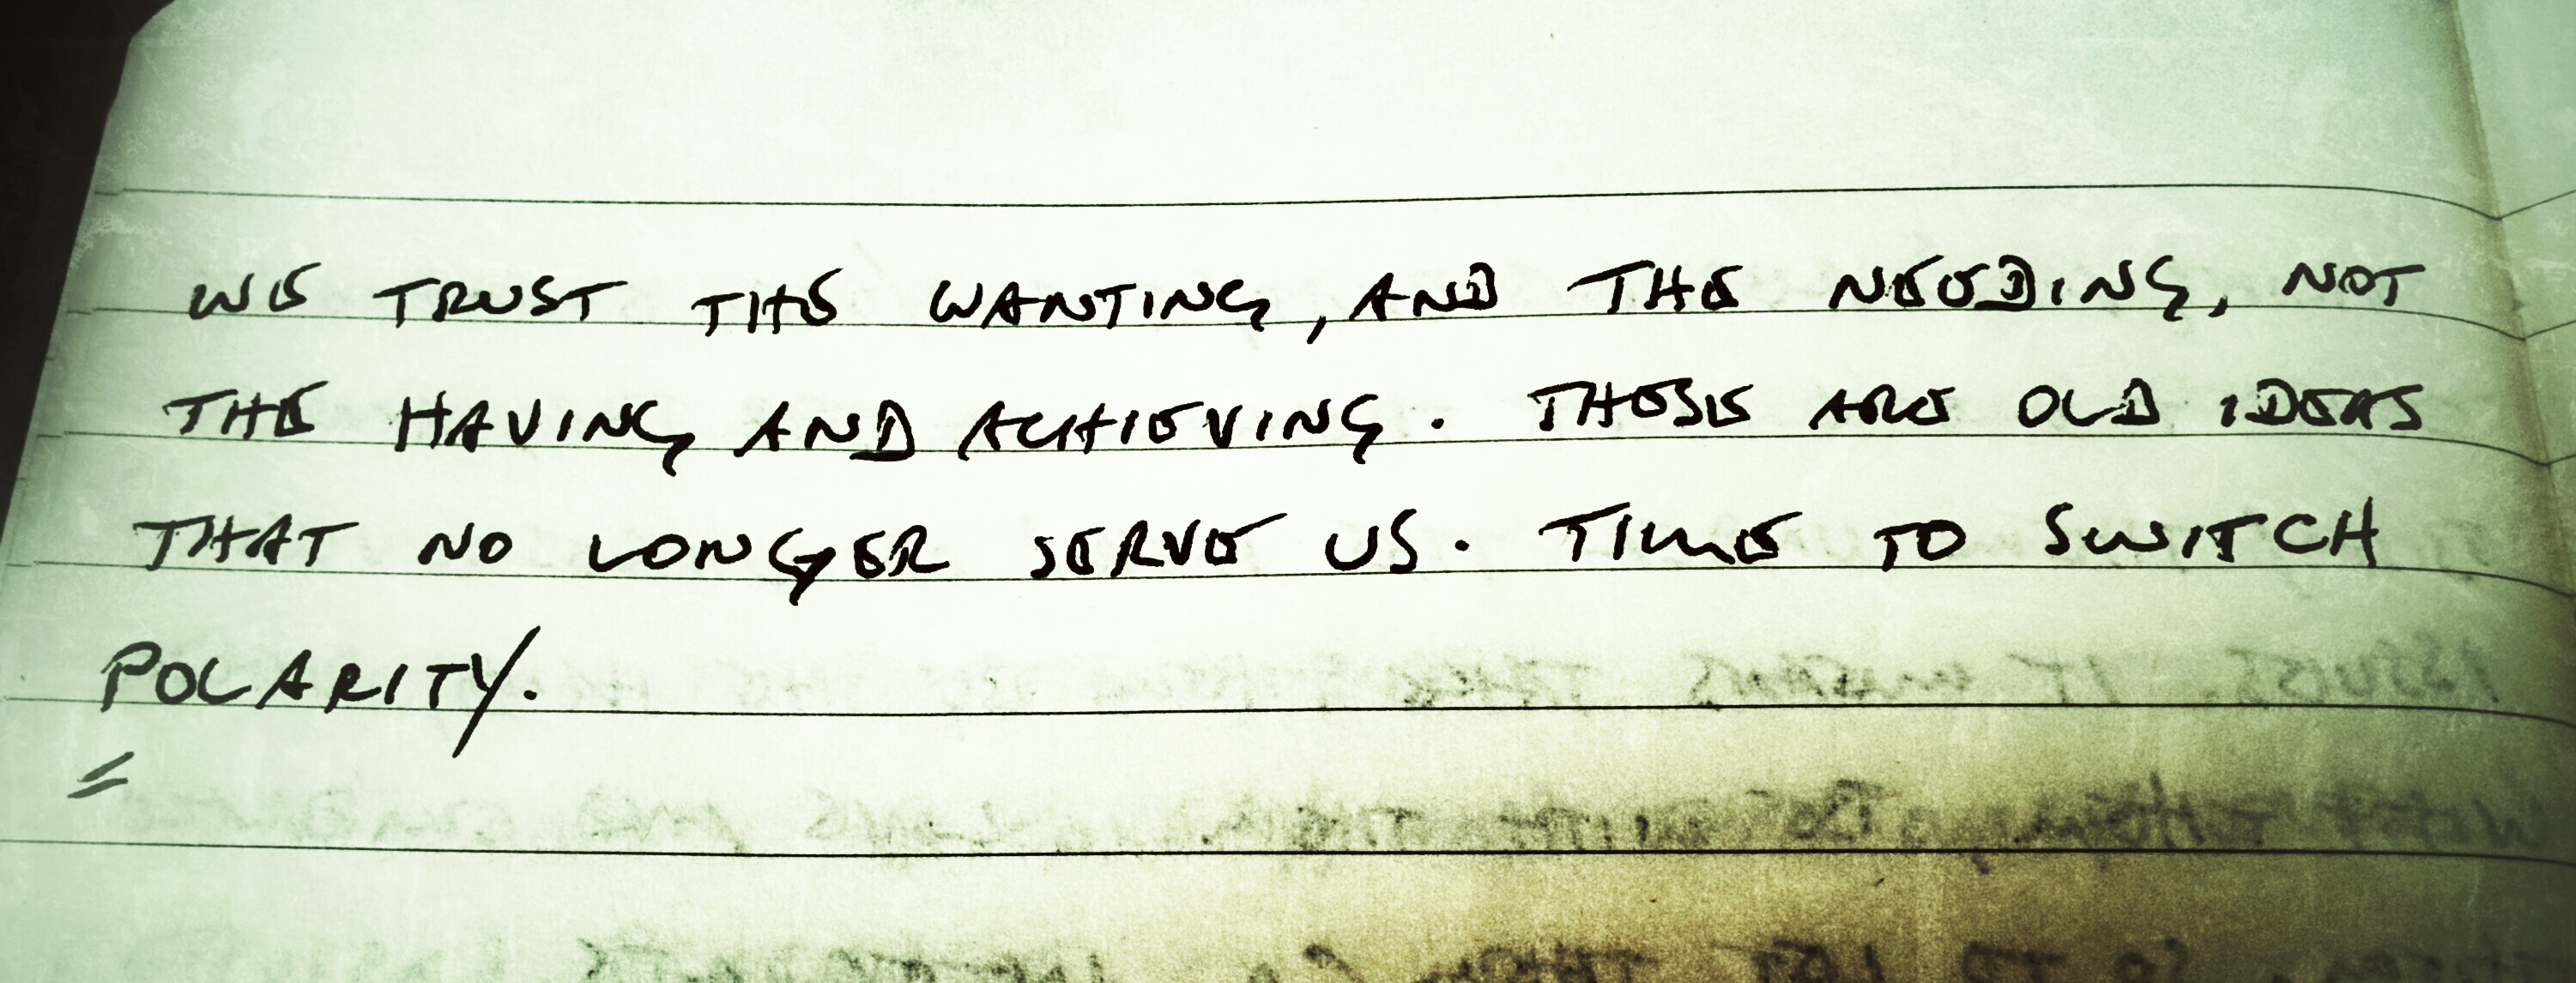 WE TRUST THE WANTING, AND THE NEEDING, NOT
THE HAVING AND ACHIEVING. THESE ARE OLD IDEAS
THAT NO LONGER SERVE US. TIME TO SWITCH
POLARITY.